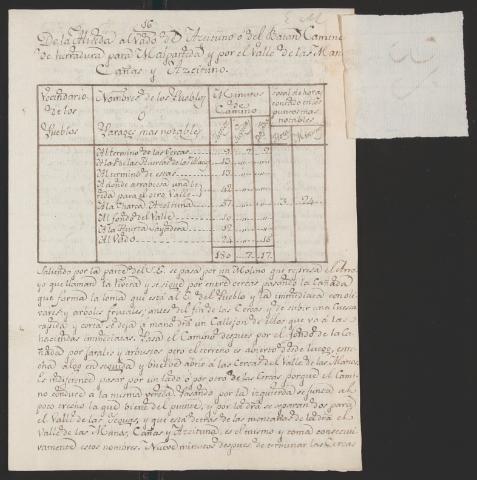 16
De la Hijada al Vado de Azeituno o del Baran Camino
de herradura para Malpartida y por el Valle de las Man
Cañas y Azeituno.
Vecindario de los Pueblos
Nombres de los Pueblos o Parages mas notables
Minutos de Camino
Total de horas contado en los puntos mas notables
Al termino de las Cercas 9 7 2
Al termino de estas 13
Adonde atrabiesa una Vereda para el otro Valle 42
A la Charca Azeituna 57 3 24
Al fondo del Valle 10
A la Huerta 12
Al Vado 24 15
180 7 17
Saliendo por la parte del S.E. se pasa por un Molino que represa el Arro
yo que llaman la Rivera y se sigue por entre cercas pasando la Cañada
que forma la loma que está al E. del Pueblo y la inmediata con olive
rares y arboles frutales; antes del fin de las Cercas y de subir una Cuesta
rapida y corta se deja a mano dra un Callejon de ellos que va a las
haciendas inmediatas. Pasa el Camino despues por el fondo de la Ca
ñada por jarales y arbustos pero el terreno es abierto desde luego, estre
cha algo en seguida y buelve abrir a las Cercas del Valle de las Manos.
Es indiferente pasar por un lado o por otro de las Cercas porque el Cami
no conduce a la misma vereda. Pasando por la izquierda se junta a el
poco trecho la que biene del puente, y por la dra se separan dos para
el Valle de las, y que está detras de las montañas de la dra el
Valle de las Manas, Cañas y Azeituna, es el mismo y toma consecuti
vamente estos nombres. Nueve minutos despues de terminar las Cercas